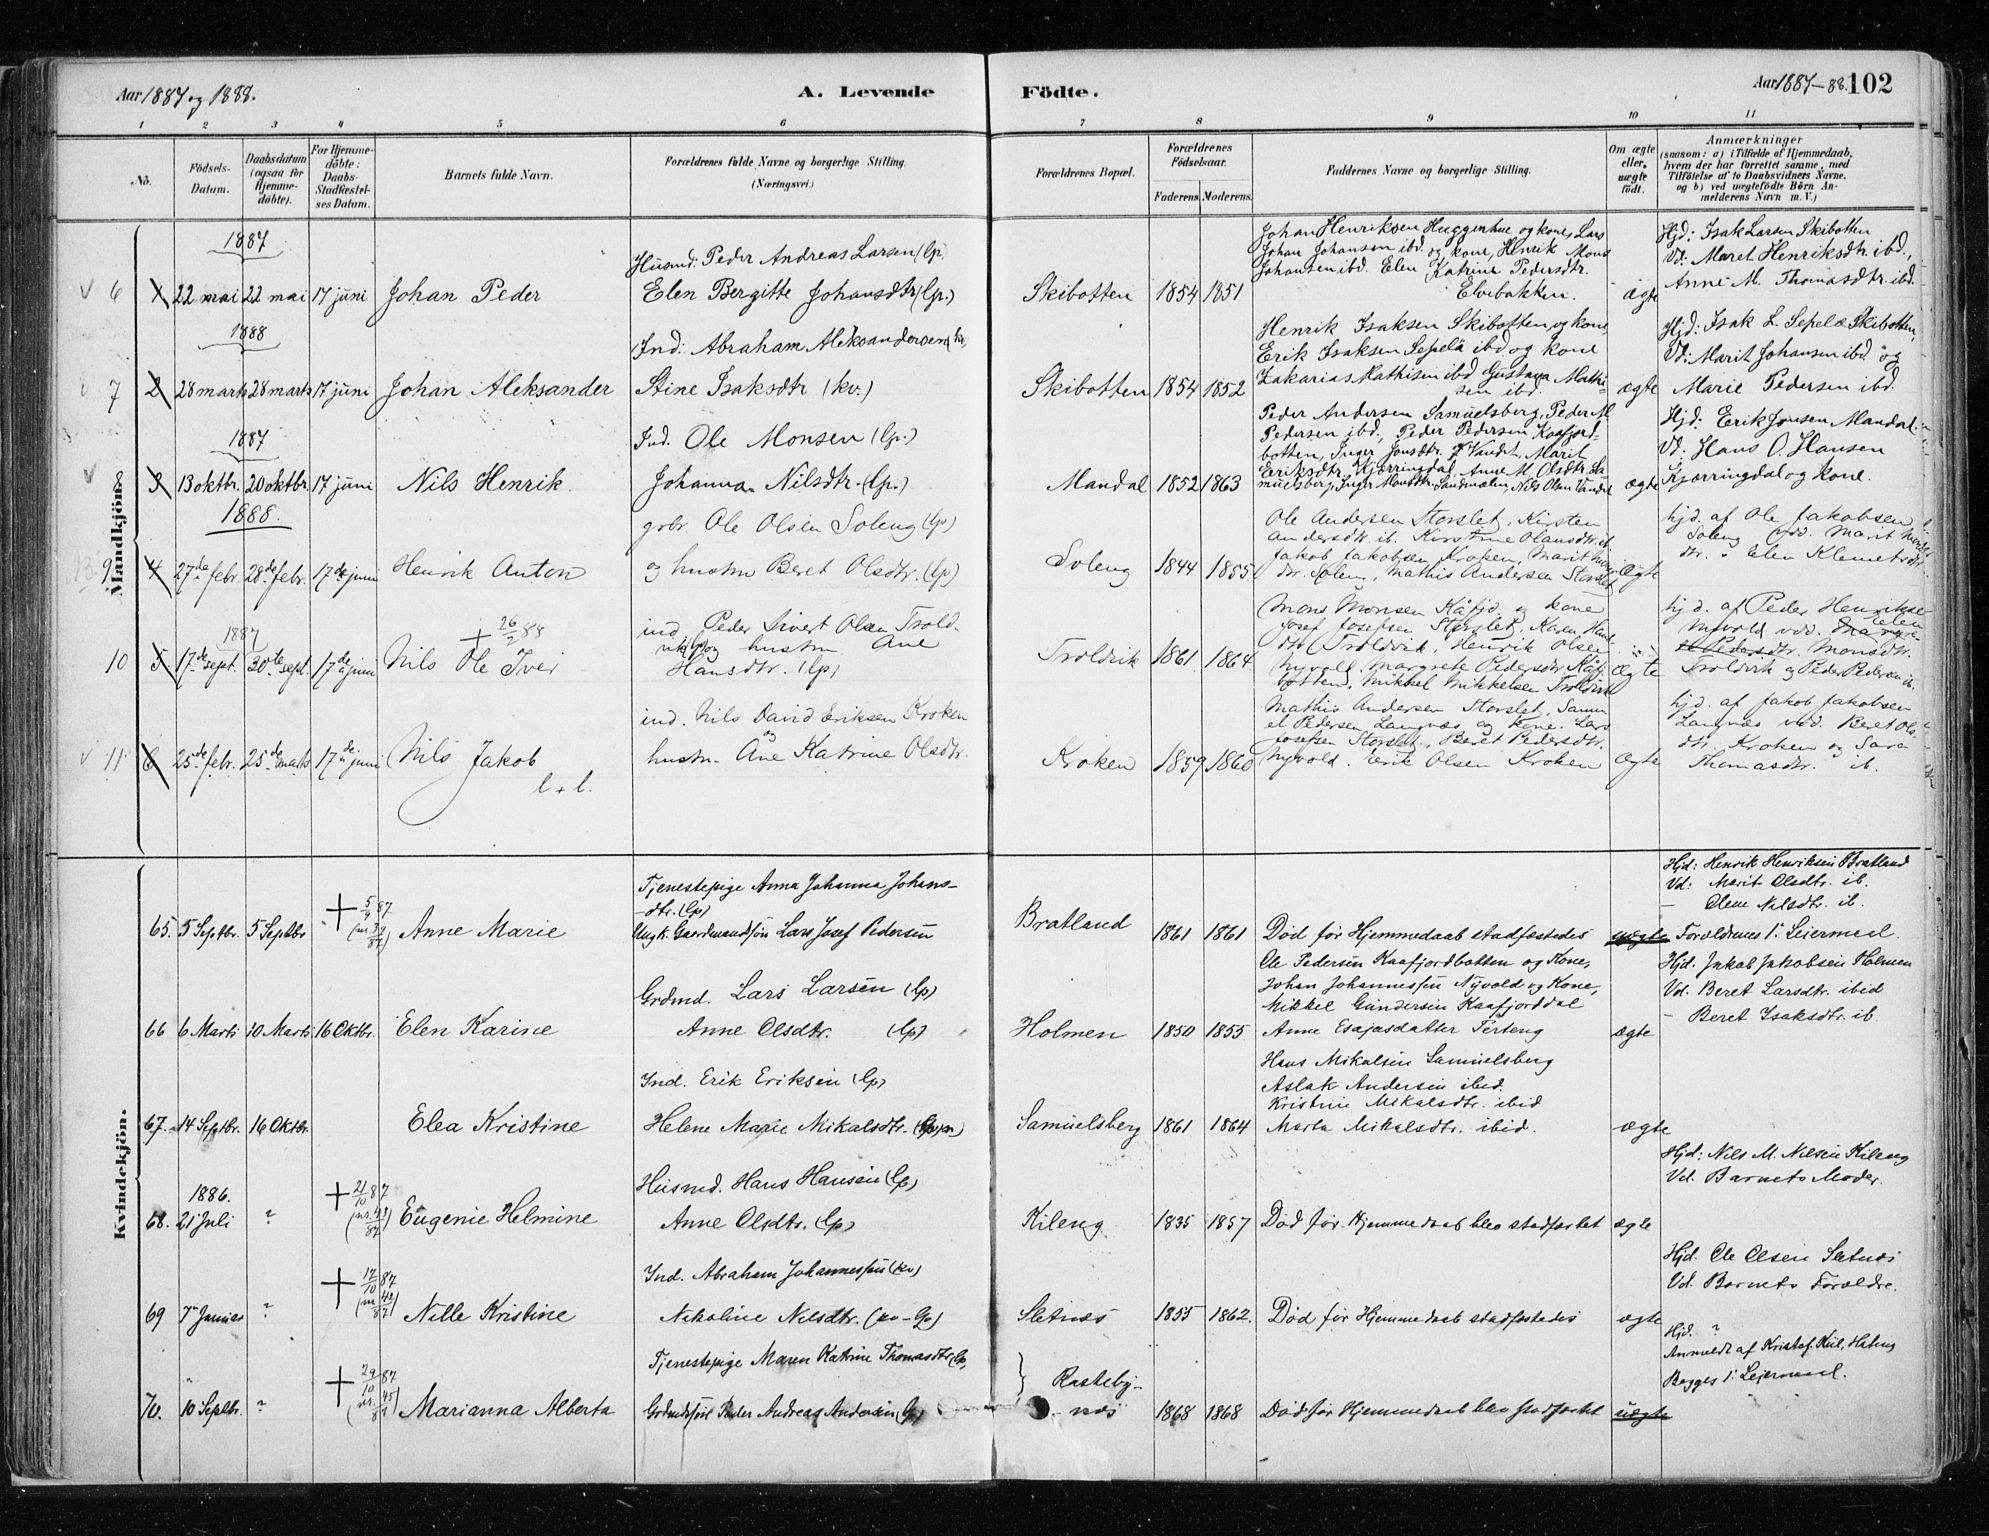 Aar 1887 og 1888.
A. Levende Födte.
Aar 1887-88. 102
1 2 3 4 5 6 7 8 9 10 11
No.
Födsels-Datum.
Daabsdatum (ogsaa for Hjemmedöbte).
For Hjemmedöbte: Daabs-Stadfæstelses Datum.
Barnets fulde Navn.
Forældrenes fulde Navne og borgerlige Stilling. (Næringsvei.)
Forældrenes Bopæl.
Forældrenes Födselsaar.
Faderens. Moderens.
Faddernes Navne og borgerlige Stilling.
Om ægte eller uægte födt.
Anmærkninger
(saasom: a) i Tilfælde af Hjemmedaab, hvem der har forrettet samme, med Tilföielse af to Daabsvidners Navne, og b) ved uægtefödte Börn Anmelderens Navn m. V.)
Mandkjön.
1887
6 1 22 mai 22 mai 17 juni Johan Peder
Husmd: Peder Andreas Larsen (lp)
Elen Bergitte Johansdtr (lp.)
Skibotten 1854 1851
Johan Henriksen Huggenhue og kone, Lars
Johan Johansen ibd. og kone, Henrik Mons
Johansen ibd. Elen Katrine Pedersdtr.
Elvebakken.
ægte
Hjd: Isak Larsen Skibotten
Vd: Maret Henriksdtr ibd.,
Anne M. Thomasdtr. ibd.
1888
7 2 28 marts 28 marts 17 juni Johan Aleksander
Ind: Abraham Aleksandersen (kv)
Stine Isaksdtr (kv.)
Skibotten 1854 1852
Henrik Isaksen Skibotten og kone
Erik Isaksen Sepelä ibd og kone
Zakarias Mathisen ibd Gustava Mathi-
sen ibd.
ægte
Hjd: Isak L. Sepelæ Skibotten,
Vd: Marit Johansen ibd og
Marie Pedersen ibd.
1887
8 3 13 oktbr. 20 oktbr. 17 juni Nils Henrik.
Ind. Ole Monsen (lp.)
Johanna Nilsdtr. (lp.)
Mandal 1852 1863
Peder Andersen Samuelsberg, Peder M
Pedersen ibd., Peder Pedersen Kaafjord-
botten, Inger Jonsdtr. Vandet, Marit
Eeriksdtr. Kjærringdal, Anne M. Olsdtr. Sa-
muelsberg, Inger Monsdtr. Sandmælen, Nils Olsen Vandet
ægte
Hjd: Erik Jonsen Mandal
Vd: Hans O. Hansen
Kjærringdal og kone.
1888.
9 4 27de febr. 28de febr. 17de juni Henrik Anton
grbr. Ole Olsen Soleng (lp)
og hustru Beret Olsdtr. (lp)
Soleng 1844 1855
Ole Andersen Storslet, Kirsten
Andersdtr ib. Kirstine Hansdtr ib.
Jakob Jakobsen Kroken, Marit
dtr. Soleng, Mathis Andersen Storslet,
ægte
hjd. af Ole Jakobsen
Soleng vdd. Marit
dtr. " Elen Klemetsdtr
1887
10 5 17de sept. 30te sept. 17de juni Nils Ole Iver
+ 26/2 88
ind. Peder Sivert Olsen Trold-
vik (lp) og hustru Ane
Hansdtr. (lp)
Troldvik 1861 1864
Mons Monsen Kåfjd. og kone
Josef Josefsen Storslet, Karen
dtr Troldvik, Henrik Olsen
Nyvold, Margrete Pedersdtr. Kåfj.
botten, Mikkel Mikkelsen Troldvik
ægte
hjd. af Peder Henrikse
Nyvold vdd. Elen
Pedersdtr. Monsdtr.
Troldvik og Peder Pedersen ib.
11 6 25de febr. 25de marts 17de juni Nils Jakob
l + l.
ind. Nils David Eriksen Kroken
og
hustru. Ane Katrine Olsdtr.
Kroken 1859 1860
Mathis Andersen Storslet, Samu
el Pedersen Langnæs og kone. Lars
Josefsen Storslet, Beret Pedersdtr.
Nyvold. Erik Olsen Kroken
ægte
hjd. af Jakob Jakobsen
Langnæs vdd. Beret Ols-
dtr Kroken og Sara
Thomasdtr. ib.
Kvindekjön.
65. 5 Septbr. 5 Septbr + 5/9 87 Anne Marie
Tjenestepige Anna Johanna Johans-
-dtr. (lp)
Ungk. Gaardmandsøn Lars Josef Pedersen
Bratland 1861 1861 Død før Hjemmedaab stadfæstedes uægte
Hjd: Henrik Henriksen Bratland
Vd: Marit Olsdtr. ib.
— Elene Nilsdtr. ib.
Forældrenes 1ste Leiermaal.
66 6 Marts 10 Marts 16 Oktbr. Elen Karine
Grdmd. Lars Larsen (lp)
Anne Olsdtr. (lp)
Holmen 1850 1855
Ole Pedersen Kaafjordbotten og Kone,
Johan Johannessen Nyvold og Kone,
Mikkel Gundersen Kaafjorddal
Anne Esajasdatter Terteng
ægte
Hjd. Jakob Jakobsen Holmen
Vd. Beret Larsdtr. ibid
— Beret Isaksdtr. ib.
67. 14 Septbr. 16 Oktbr. Elea Kristine
Ind. Erik Eriksen (lp)
Helene Marie Mikalsdtr.
Samuelsberg 1861 1864
Hans Mikalsen Samuelsberg
Aslak Andersen ibid.
Kristine Mikalsdtr. ibid
Marta Mikalsdtr. ibid.
ægte
1886.
68. 21 Juli ? + 21/10 87 Eugenie Helmine
Husmd. Hans Hansen (lp)
Anne Olsdtr. (lp)
Kileng 1835 1857 Død før Hjemmedaab blev stadfæstet ægte
Hjd: Nils M. Nilsen Kileng
Vd. Barnets Moder.
69 7 Januar ? + 17/10 87 Nille Kristine
Ind. Abraham Johannessen (kv)
Nikoline Nilsdtr. (kv-lp)
Sletnæs 1855 1862. Død før Hjemmedaab stadfæstedes ægte
Hjd. Ole Olsen Sletnæs
Vd. Barnets Forældre.
70. 10 Septbr. ? + 29/10 87 Marianna Alberta
Tjenestepige Maren Katrine Thomasdtr (lp)
Grdmdsøn Peder Andreas Andersen (lp)
Rasteby-
næs 1868 1868 Død før Hjemmedaab blev stadfæstet uægte
Hjd. ?
Anmeldt af Kristof. Kiil, Hateng
Begges 1ste Leiermaal.